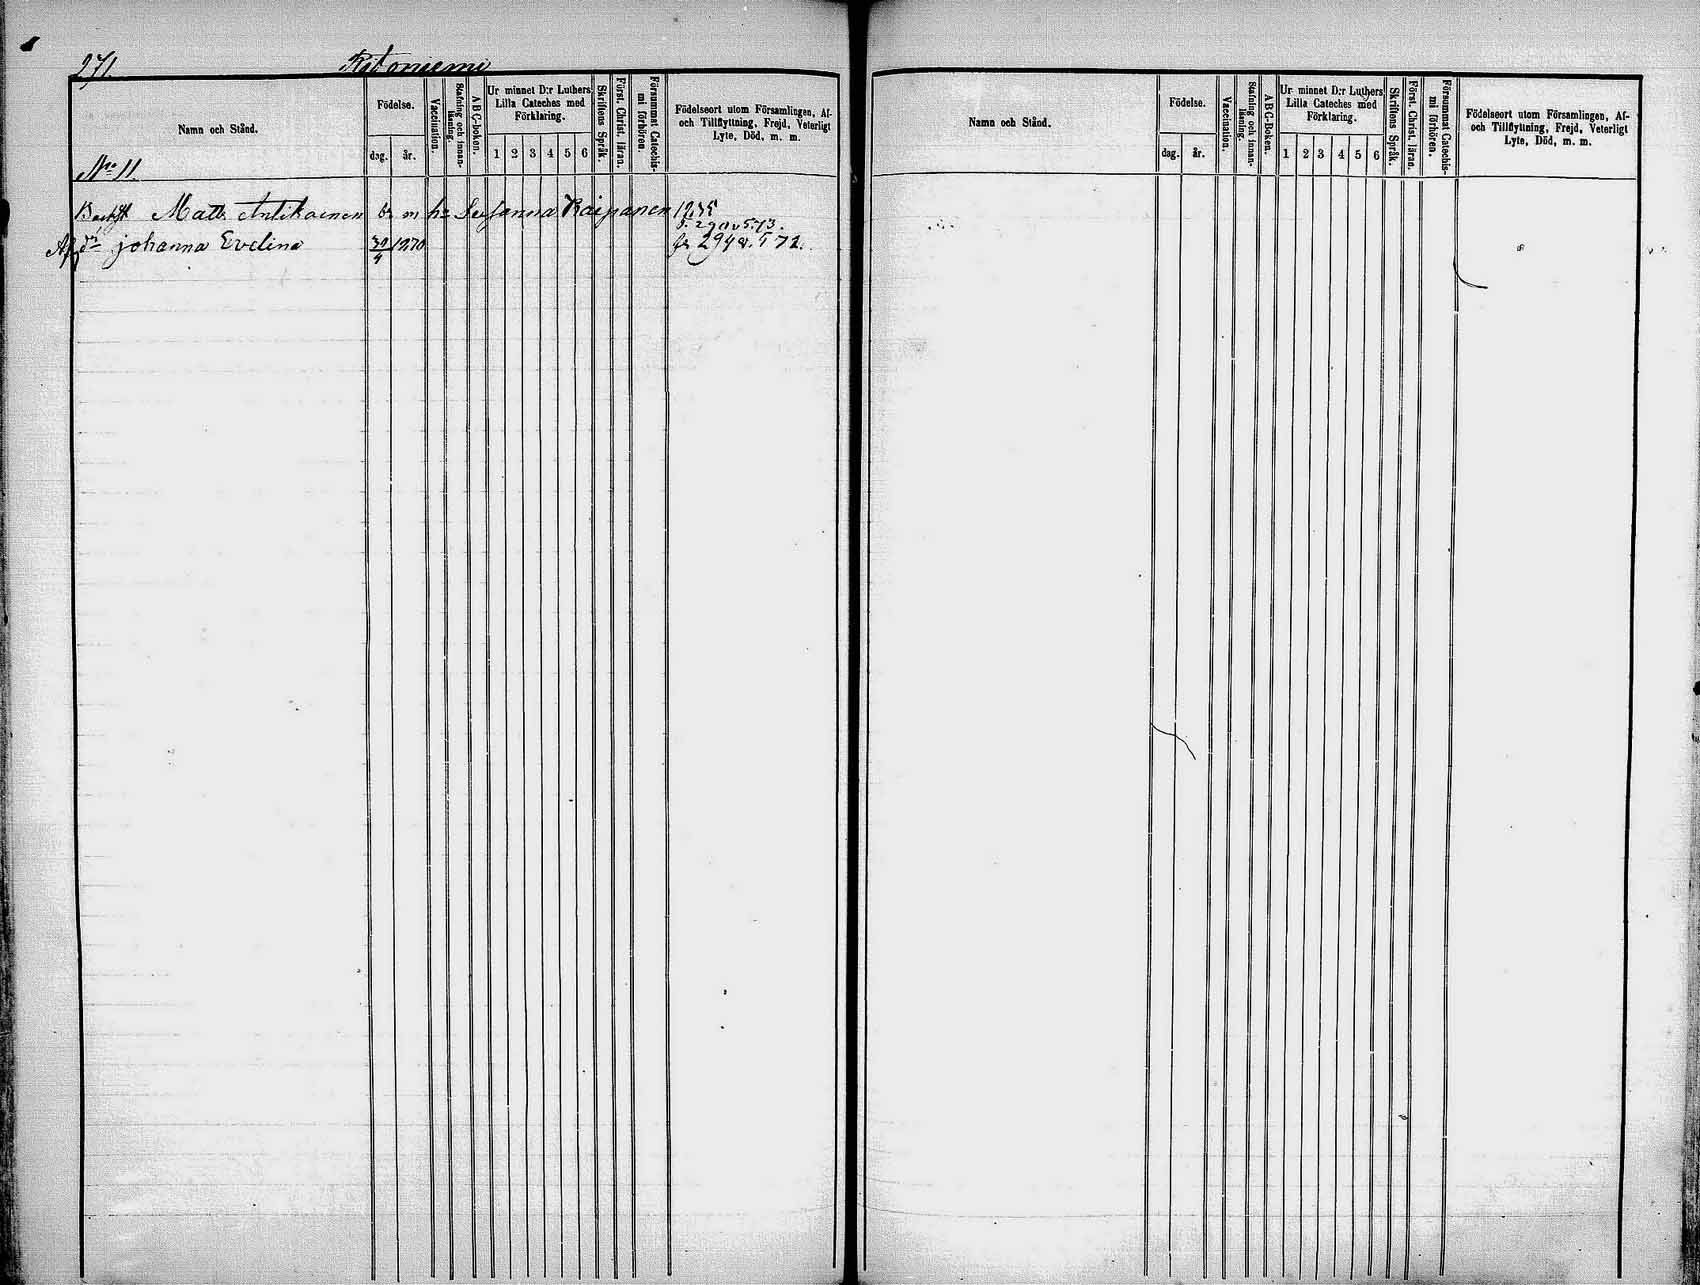 271.
Ritoniemi
Namn och Stånd.
Födelse.
dag.
år.
Vaccination.
Stafning och innan-läsning.
A B C-boken.
Ur minnet D:r Luthers
Lilla Cateches med
Förklaring.
1 2 3 4 5 6
Skriftens Språk.
Först. Christ. läran.
Försummat Catechis-mi förhören.
Födelseort utom Församlingen, Af-
och Tillflyttning, Frejd, Veterligt
Lyte, Död, m. m.
No 11.
Matts Antikainen m ha Susanna Raipanen
Johanna Evelina 30/4 1870
Namn och Stånd.
Födelse.
dag.
år.
Vaccination.
Stafning och innan-läsning.
A B C-Boken.
Ur minnet D:r Luthers
Lilla Cateches med
Förklaring.
1 2 3 4 5 6
Skriftens Språk.
Först. Christ. läran.
Försummat Catechis-mi förhören.
Födelseort utom Församlingen, Af-
och Tillflyttning, Frejd, Veterligt
Lyte, Död, m. m.